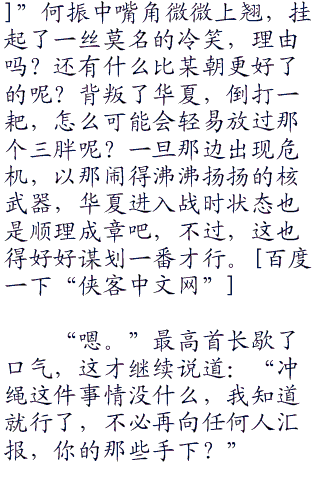 ]”何振中嘴角微微上翘，挂
起了一丝莫名的冷笑，理由
吗？还有什么比某朝更好了
的呢？背叛了华夏，倒打一
耙，怎么可能会轻易放过那
个三胖呢？一旦那边出现危
机，以那闹得沸沸扬扬的核
武器，华夏进入战时状态也
是顺理成章吧，不过，这也
得好好谋划一番才行。[百度
一下“侠客中文网”]
“嗯。”最高首长歇了
口气，这才继续说道：“冲
绳这件事情没什么，我知道
就行了，不必再向任何人汇
报，你的那些手下？”